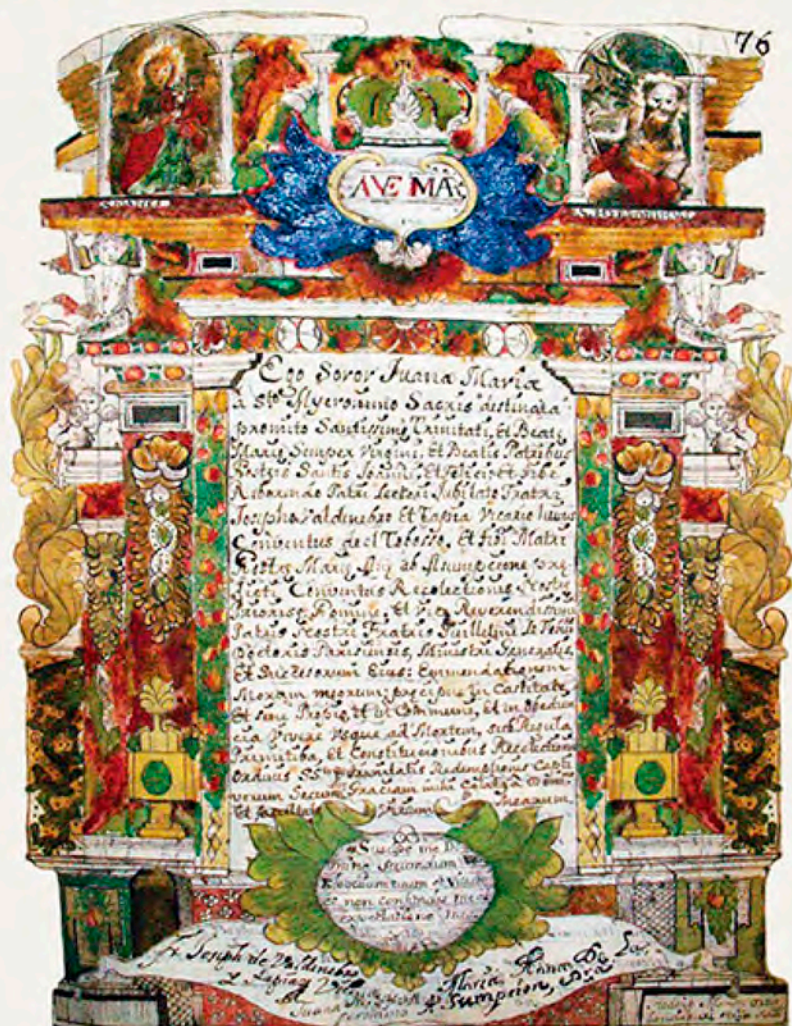 76
AVE MA
Ego Soror Juana Maria
a Sto Hyeronimo Sacris destinata
promito Santissime Trinitati, Et Beate
Marie Semper Virgini, Et Beatis Patribus
Nostris Santis Joanni, Et Felici, Et tibi
Reberendo Patri Lectori Jubilato Fratri
Josepho Valdinebro Et Tapia Vicario huius
Conventus de el Toboso, Et tibi Matri
Nostre Marie Ane ab Asumpcione
Conventus Recolectionis Nostre
Priorise Nomine, Et Vice Reverendissimi
Patris Nostri Fratris Guillelmi Le
Doctoris Parisiensis, Ministri Generalis,
Et Sucesorum Eius: Enmendationem
Morum meorum: precipue in Castitate
Et sine Propio, et in Communi, Et in obedien
cia Vivere Vsque ad Mortem, sub Regula
Primitiba, Et Constitucionibus Recolectionis
Ordinis SSme Trinitatis Redemptionis Capti
vorum Secum Graciam mihi
Et mearum
Suscipe me Do
mine secundum
eloquium tuum et Vivam
et non confundas me
ab expectatione mea
fr. Joseph de Valdinebro
y Tapia
Maria Anna De La
Asumpcion,
Juana Ma de Sn
Geronimo